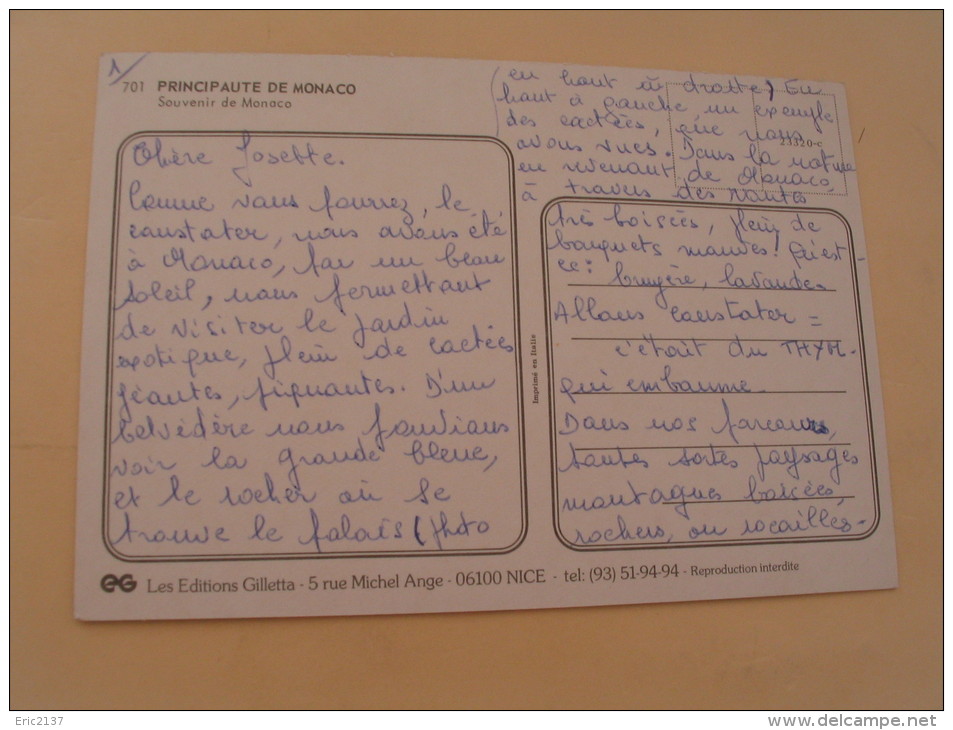 1/
701 PRINCIPAUTE DE MONACO
Souvenir de Monaco
Chère Josette.
Comme vous pourrez, le
constater, nous avons été
à Monaco, par un beau
soleil, nous permettant
de visiter le jardin
exotique, plein de cactées
géantes, piquantes. D'un
belvédère nous pouvions
voir la grande bleue,
et le rocher où se
trouve le palais (photo
en haut à droite) En
haut à gauche un exemple
des cactées, que nous
avons vues. Dans la nature
en revenant de Monaco,
à travers des routes
23320-c
très boisées, plein de
bouquets mauves! Qu'est-
ce: bruyère, lavande.
Allons constater =
c'était du THYM.
qui embaume.
Dans nos parcours,
toutes sortes paysages
montagnes boisées,
rochers, ou rocailles-
Imprimé en Italie
EG Les Editions Gilletta - 5 rue Michel Ange - 06100 NICE - tel: (93) 51-94-94 - Reproduction interdite
Eric2137
www.delcampe.net